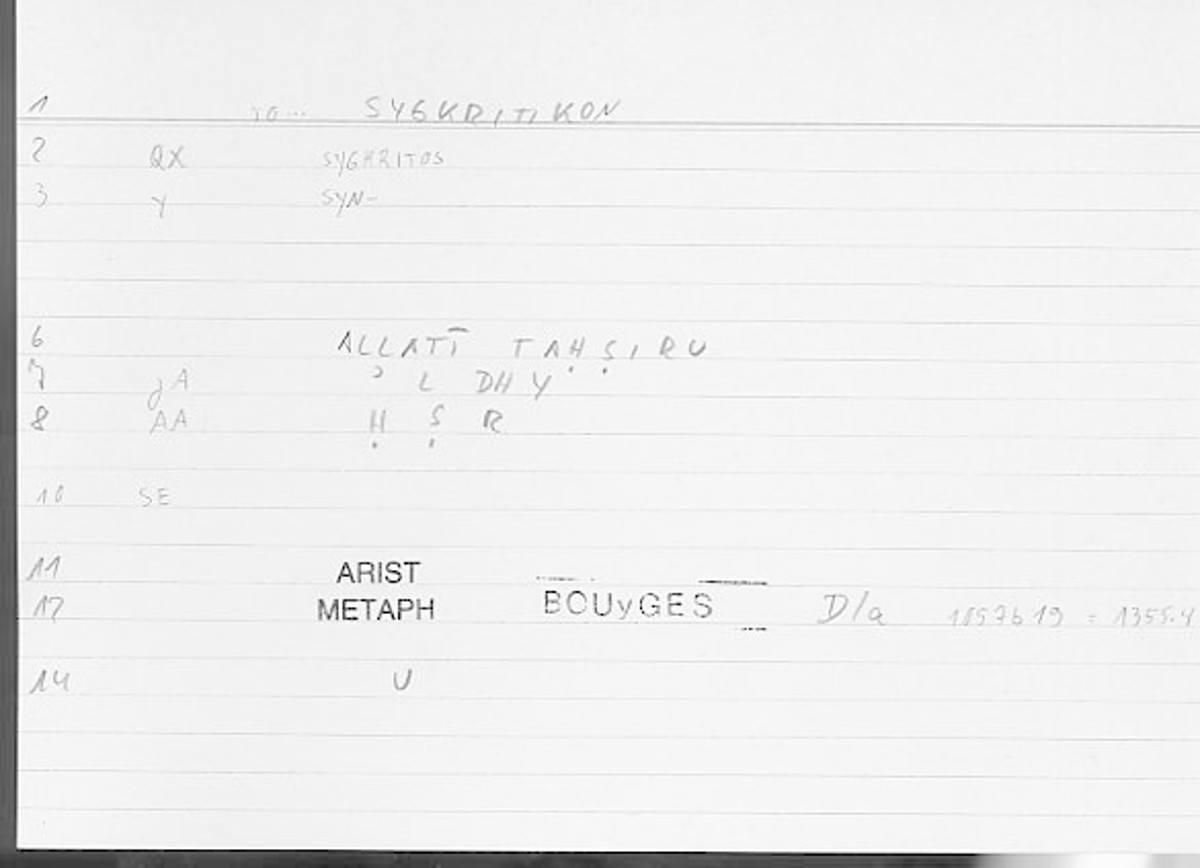 1 TO... SYGKRITIKON
2 QX SYGKRITOS
3 Y SYN-
6 ALLATĪ TAḤṢIRU
7 JA ʾ L DHY
8 AA Ḥ Ṣ R
10 SE
11 ARIST
12 METAPH BOUyGES D/a 1057b19 = 1355.4
14 U